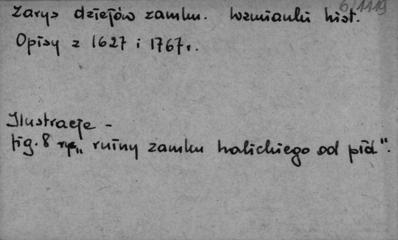 6/1119
Zarys dziejów zamku. Wzmianki hist.
Opisy z 1627 i 1767r.
Ilustracje -
fig. 8 rys. „ruiny zamku halickiego od płd".